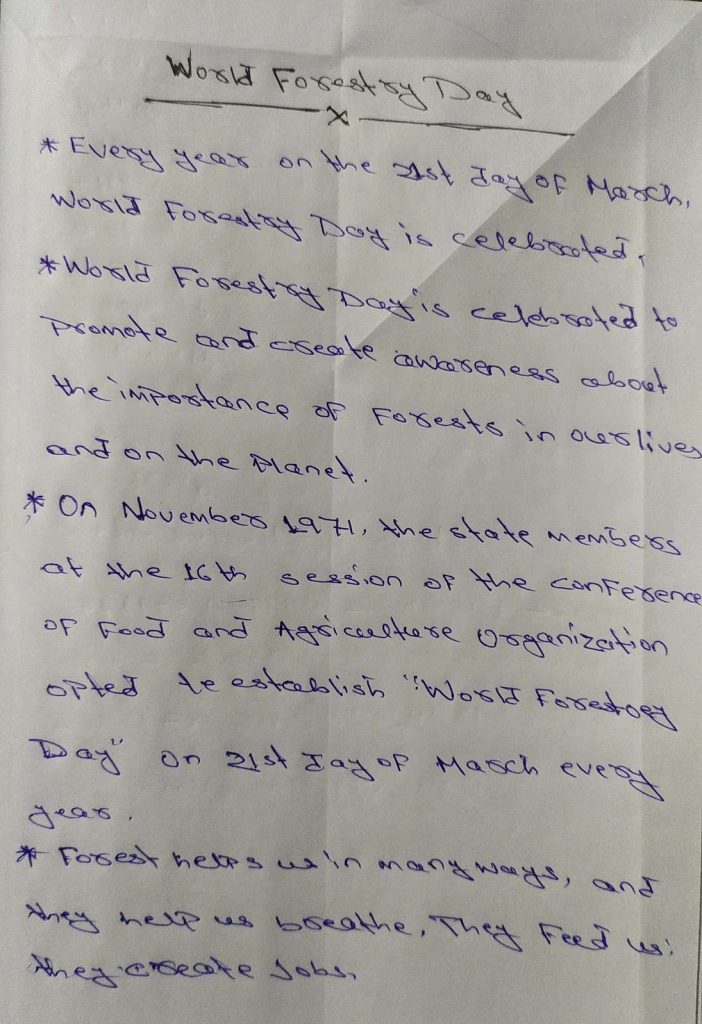 World Forestry Day
x
* Every year on the 21st day of March,
World Forestry Day is celebrated,
* World Forestry Day is celebrated to
promote and create awareness about
the importance of Forests in our lives
and on the Planet.
* On November 1971, the state members
at the 16th session of the conference
of Food and Agriculture Organization
opted to establish "World Forestry
Day" on 21st day of March every
year.
* Forest helps us in many ways, and
they help us breathe, They Feed us:
they create Jobs,